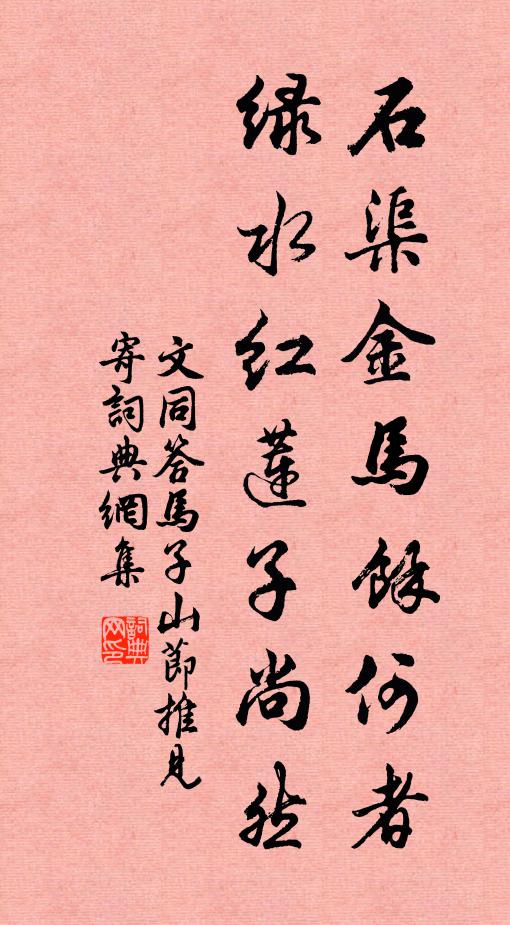 石渠金馬餘何者
綠水紅蓮子尚然
文同答馬子山節推見
寄詞典網集
詞典網印